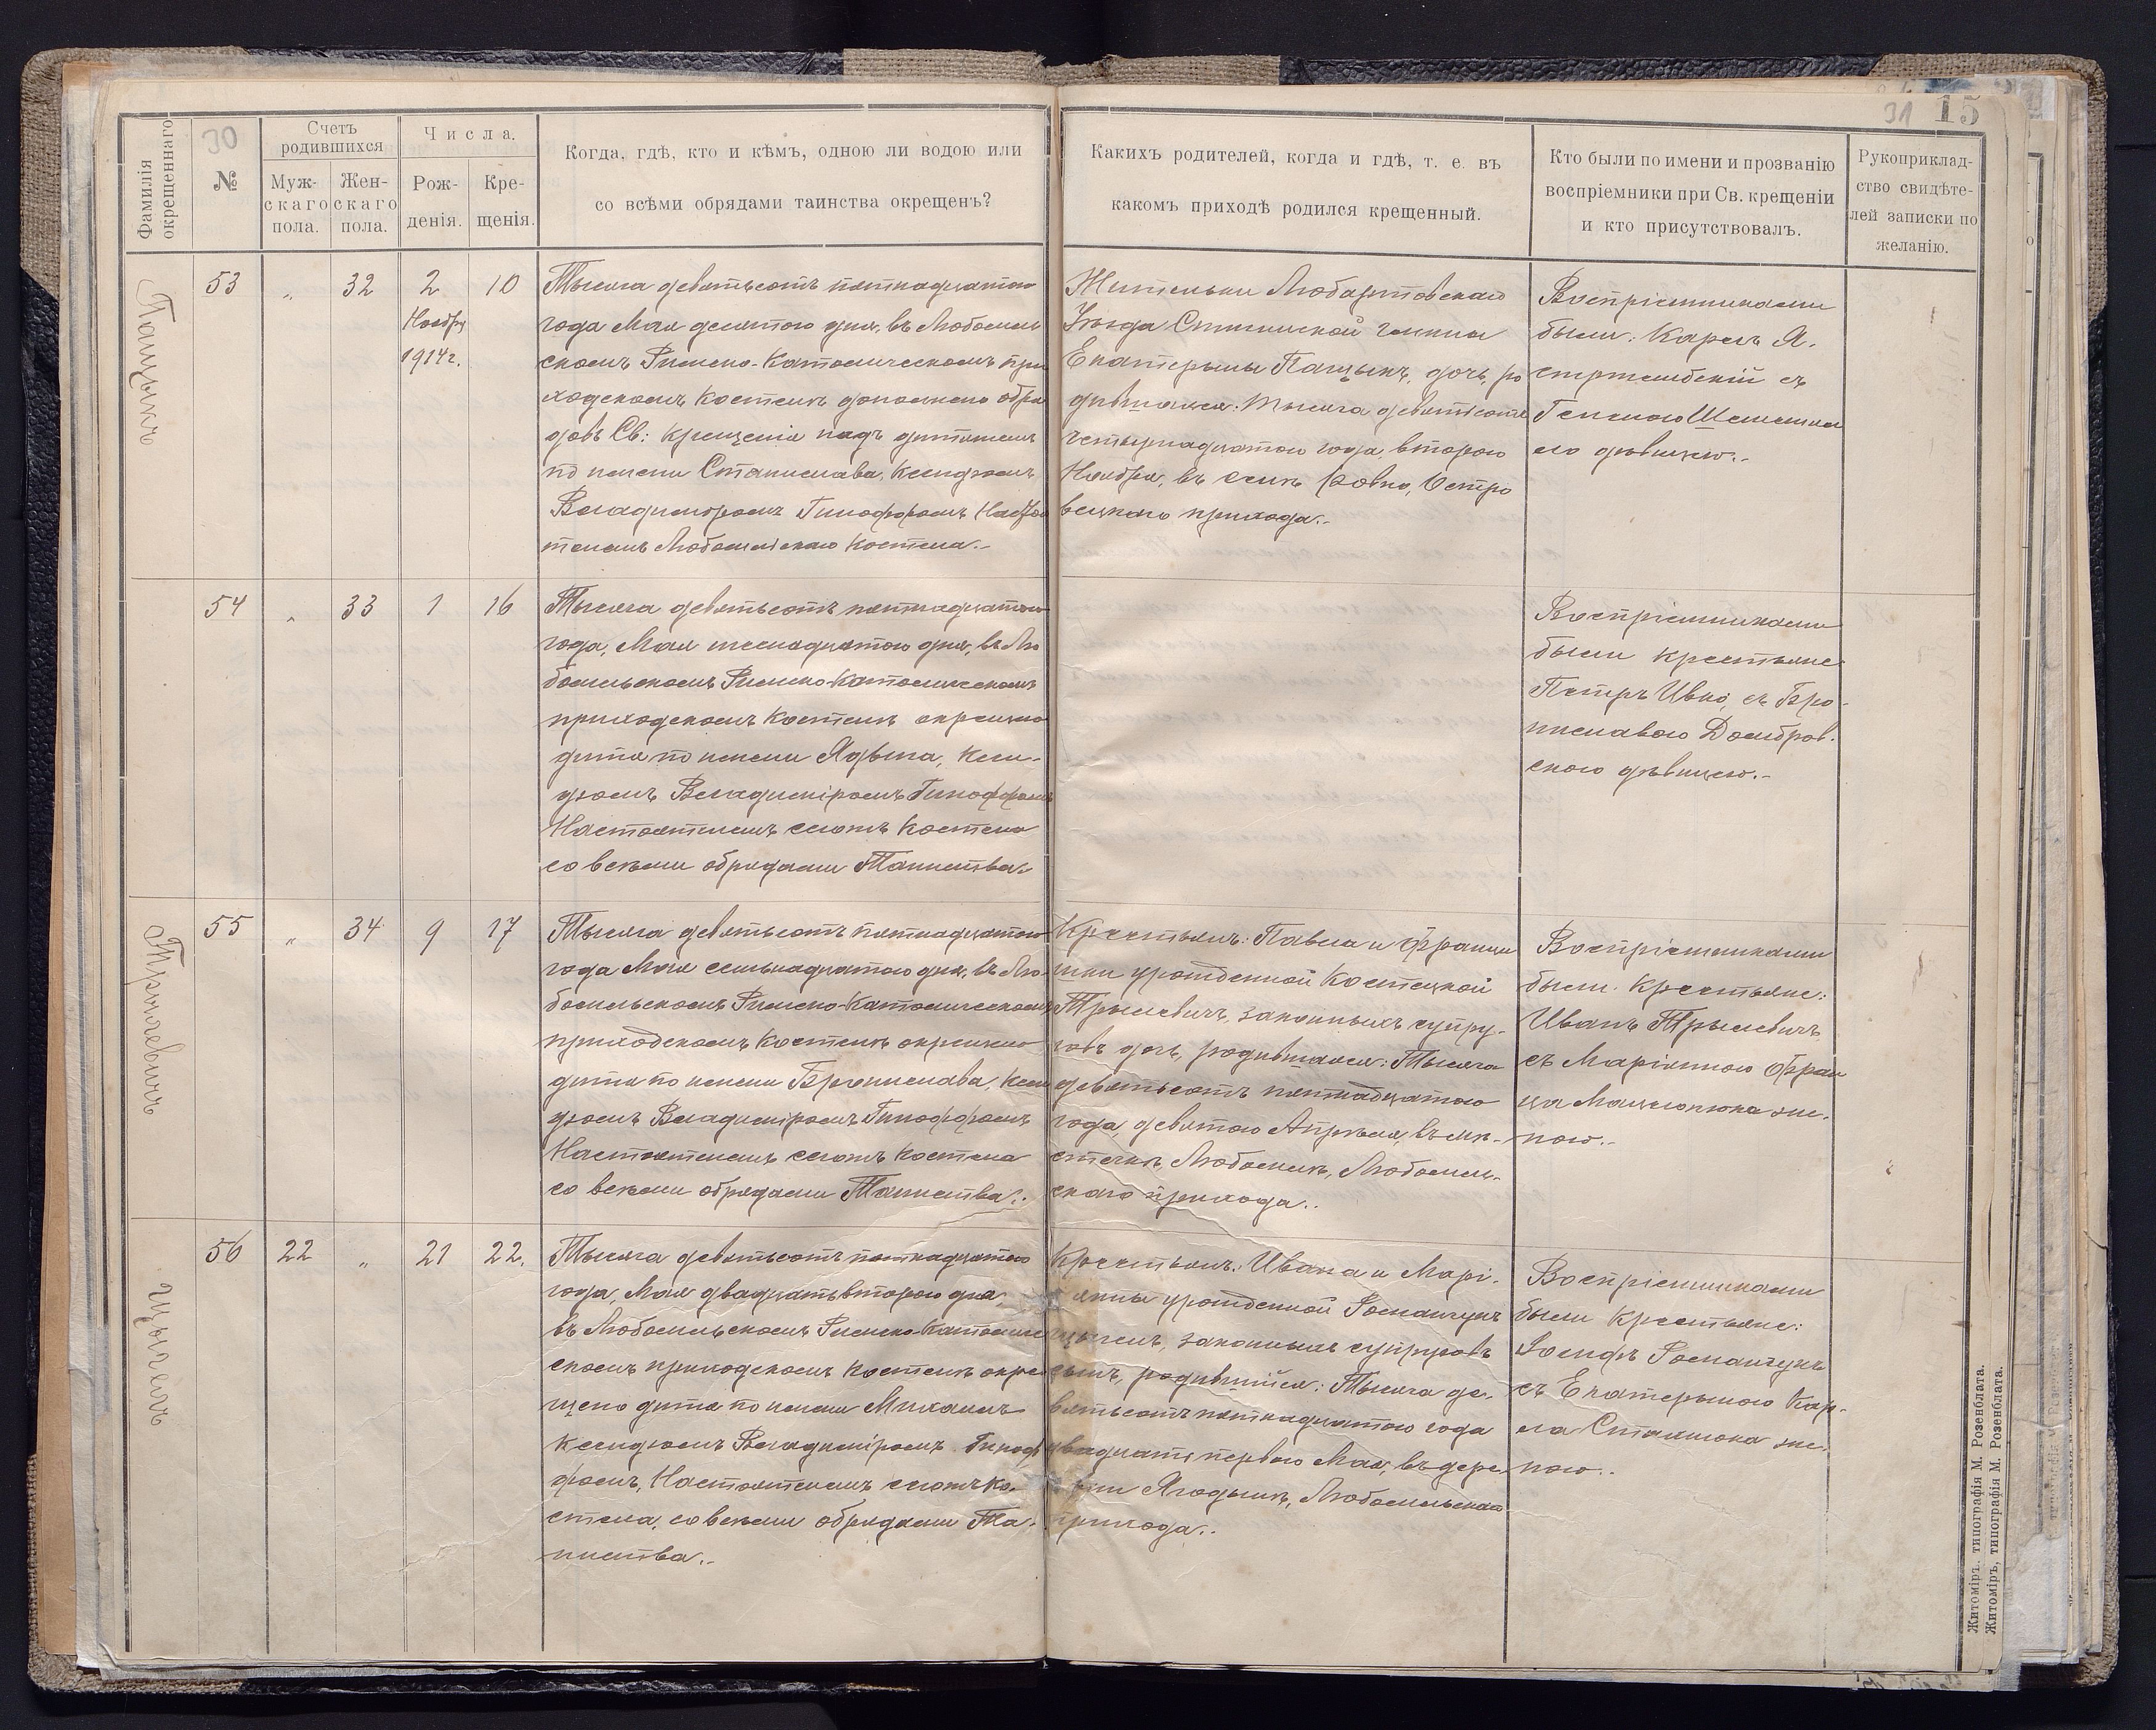 30
31 15
Фамилія окрещеннаго
№
Счетъ родившихся
Муж-скаго пола.
Жен-скаго пола.
Числа.
Рож-денія.
Кре-щенія.
Когда, гдѣ, кто и кѣмъ, одною ли водою или
со всѣми обрядами таинства окрещенъ?
Какихъ родителей, когда и гдѣ, т. е. въ
какомъ приходѣ родился крещенный.
Кто были по имени и прозванію
воспріемники при Св. крещеніи
и кто присутствовалъ.
Рукоприклад-
ство свидѣте-
лей записки по
желанію.
Пащукъ
53 " 32 2 10
Ноября
1914 г.
Тысяча девятьсотъ пятнадцатого
года Мая десятого дня, въ Любомль
скомъ Римско-Католическомъ при
ходскомъ Костелѣ дополнено обря
довъ Св: Крещенія надъ дитятемъ
по имени Станислава, Ксендзомъ
Владиміромъ Гиноффомъ Настоя
телемъ Любомльскаго Костела.-
Жительки Любартовскаго
Уѣзда гмины
Екатерины Пащукъ, дочь, ро
дившаяся: Тысяча девятьсотъ
четырнадцатого года, второго
Ноября, въ селѣ Ровно, Остро
вецкаго прихода.-
Воспріемниками
были: Карлъ Я.
стржембскій съ
Геленою
ею дѣвицею.-
54 " 33 1 16
Тысяча девятьсотъ пятнадцатого
года, Мая шеснадцатого дня, въ Лю
бомльскомъ Римско-Католическомъ
приходскомъ Костелѣ окрещено
дитя по имени Ядвига, Ксен-
дзомъ Владиміромъ Гиноффомъ
Настоятелемъ сегожъ Костела
со всѣми обрядами Таинства.-
Воспріемниками
были крестьяне
Петръ Ивко, съ Бро-
ниславою Домбров-
скою дѣвицею.-
Трусевичъ
55 " 34 9 17
Тысяча девятьсотъ пятнадцатого
года Мая семьнадцатого дня, въ Лю-
бомльскомъ Римско-Католическомъ
приходскомъ Костелѣ окрещено
дитя по имени Бронислава, Ксен
дзомъ Владиміромъ Гиноффомъ
Настоятелемъ сегожъ Костела
со всѣми обрядами Таинства.-
Крестьянъ: Павла и Францы
шки урожденной Костецкой
законныхъ супру-
говъ дочь, родившаяся: Тысяча
девятьсотъ пятнадцатого
года, девятого Апрѣля, въ мѣ-
стечкѣ Любомлѣ, Любомль-
скаго прихода.-
Воспріемниками
были Крестьяне:
Иванъ
съ Маріянною Фран
ца Мацѣюка же-
ною.-
56 22 " 21 22.
Тысяча девятьсотъ пятнадцатого
года, Мая двадцатьвторого дня,
въ Любомльскомъ Римско-Католиче
скомъ приходскомъ Костелѣ окре
щено дитя по имени Михаилъ
Ксендзомъ Владиміромъ Гиноф
фомъ, Настоятелемъ сегожъ Ко-
стела, со всѣми обрядами Та-
инства.-
Крестьянъ: Ивана и Марі-
янны урожденной Романчукъ
законныхъ супруговъ
сынъ, родившійся: Тысяча де-
вятьсотъ пятнадцатого года
двадцать первого Мая, въ дере-
вни Ягодынѣ, Любомльскаго
прихода.-
Воспріемниками
были Крестьяне:
Іосифъ Романчукъ
съ Екатериною Кар-
ла же-
ною.-
Житоміръ, типографія М. Розенблата.
Житоміръ, типографія М. Розенблата.